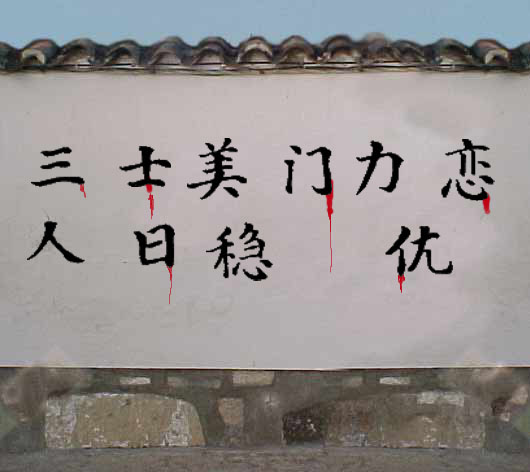 三士美门力恋
人日稳伉